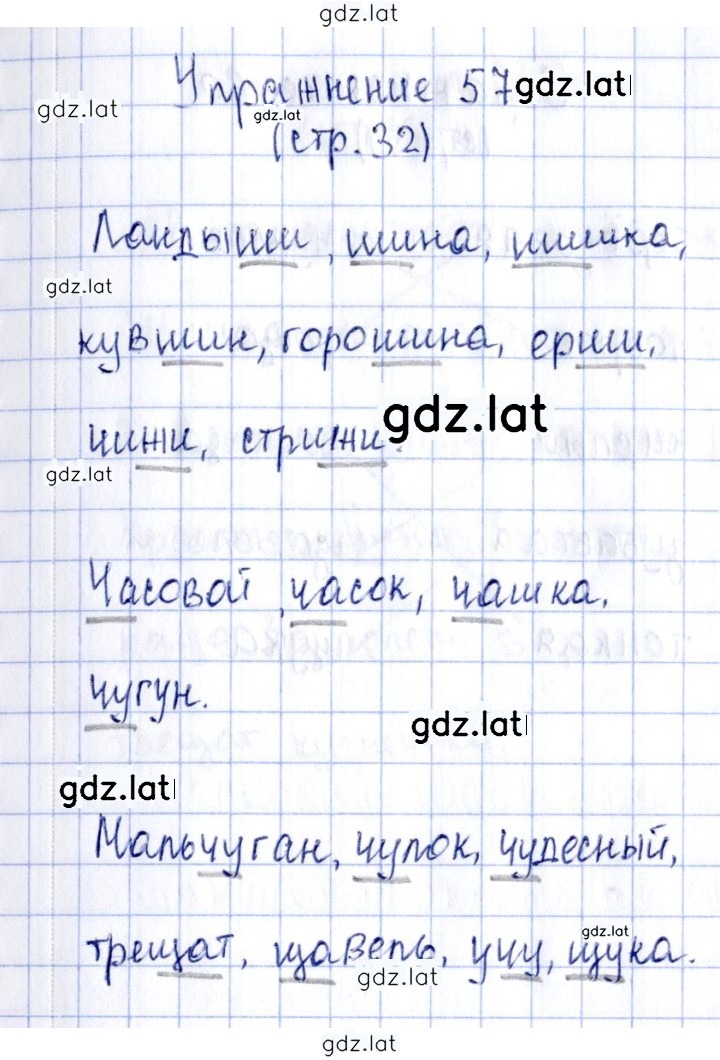 gdz.lat
Упражнение 57 gdz.lat
gdz.lat
gdz.lat
(стр. 32)
Ландыши, шина, шишка,
gdz.lat
кувшин, горошина, ерши,
gdz.lat
чижи, стрижи.
gdz.lat
Часовой, часок, чашка,
чугун.
gdz.lat
gdz.lat
Мальчуган, чулок, чудесный,
gdz.lat
трещат, щавель, учу, щука.
gdz.lat
gdz.lat